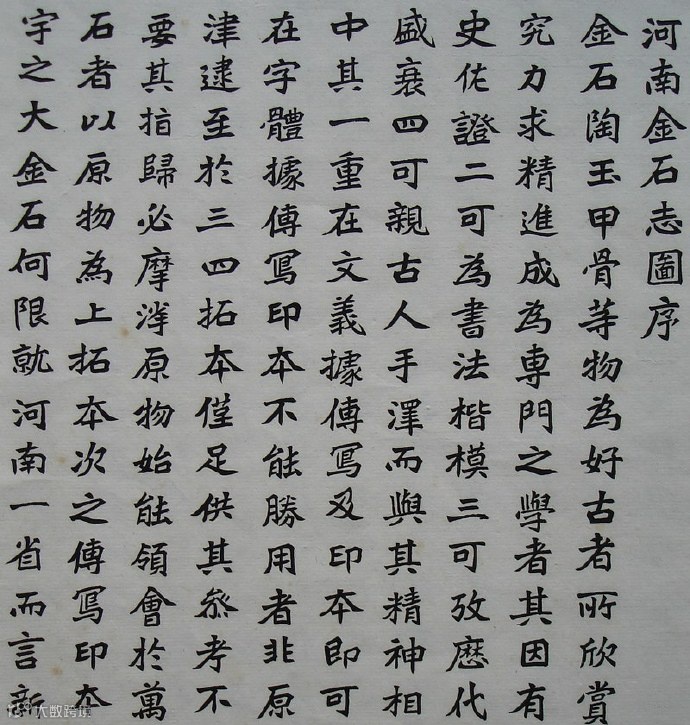 河南金石志圖序
金石陶玉甲骨等物為好古者所欣賞
究力求精進成為專門之學者其因有
史佐證二可為書法楷模三可攷歷代
盛衰四可親古人手澤而與其精神相
中其一重在文義據傳寫及印本即可
在字體據傳寫印本不能勝用者非原
津逮至於三四拓本僅足供其參考不
要其指歸必摩原物始能領會於萬
石者以原物為上拓本次之傳寫印本
宇之大金石何限就河南一省而言新
大数跨境